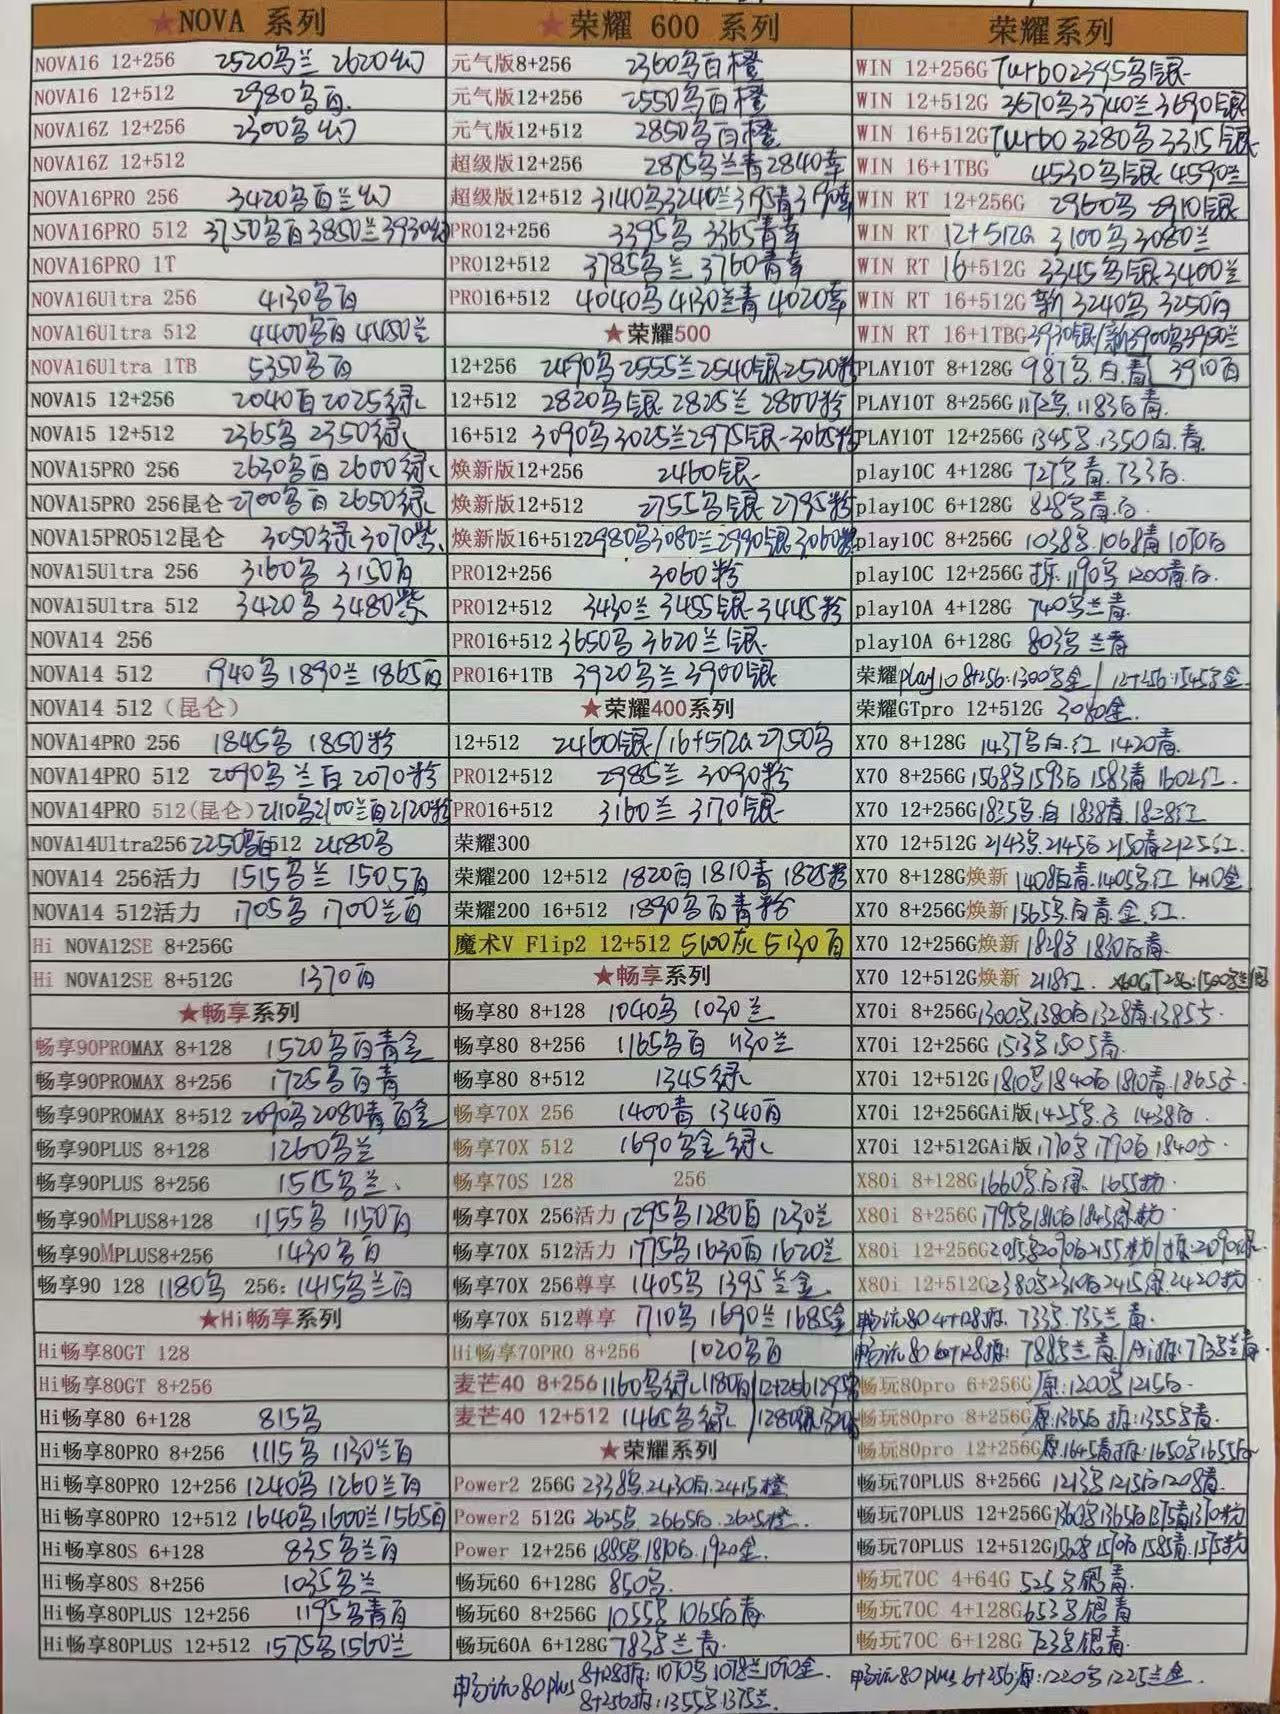 ★NOVA 系列
NOVA16 12+256 2520乌兰 2620幻
NOVA16 12+512 2980乌百.
NOVA16Z 12+256 2300乌幻
NOVA16Z 12+512
NOVA16PRO 256 3420乌百兰幻
NOVA16PRO 512 3750乌百3850兰3930幻
NOVA16PRO 1T
NOVA16Ultra 256 4130乌百
NOVA16Ultra 512 4400乌百 4450兰
NOVA16Ultra 1TB 5350乌百
NOVA15 12+256 2040百 2025绿
NOVA15 12+512 2365乌 2350绿
NOVA15PRO 256 2630乌百 2600绿
NOVA15PRO 256昆仑 2700乌百 2650绿
NOVA15PRO512昆仑 3050绿 3070紫
NOVA15Ultra 256 3160乌 3150百
NOVA15Ultra 512 3420乌 3480紫
NOVA14 256
NOVA14 512 1940乌 1890兰 1865百
NOVA14 512（昆仑）
NOVA14PRO 256 1845乌 1850粉
NOVA14PRO 512 2090乌兰百 2070粉
NOVA14PRO 512(昆仑) 2110乌2100兰百2120粉
NOVA14Ultra256 2250乌百 512 2480乌
NOVA14 256活力 1515乌兰 1505百
NOVA14 512活力 1705乌 1700兰百
Hi NOVA12SE 8+256G
Hi NOVA12SE 8+512G 1370百
★畅享系列
畅享90PROMAX 8+128 1520乌百青金
畅享90PROMAX 8+256 1725乌百青
畅享90PROMAX 8+512 2090乌2080青百金
畅享90PLUS 8+128 1260乌兰
畅享90PLUS 8+256 1515乌兰.
畅享90MPLUS8+128 1155乌 1150百
畅享90MPLUS8+256 1430乌百
畅享90 128 1180乌 256: 1415乌兰百
★Hi畅享系列
Hi畅享80GT 128
Hi畅享80GT 8+256
Hi畅享80 6+128 815乌
Hi畅享80PRO 8+256 1115乌 1130兰百
Hi畅享80PRO 12+256 1240乌 1260兰百
Hi畅享80PRO 12+512 1640乌1600兰1565百
Hi畅享80S 6+128 835乌兰百
Hi畅享80S 8+256 1035乌兰
Hi畅享80PLUS 12+256 1195乌青百
Hi畅享80PLUS 12+512 1575乌1560兰
★荣耀 600 系列
元气版8+256 2360乌百橙
元气版12+256 2550乌百橙
元气版12+512 2850乌百橙
超级版12+256 2875乌兰青2840幸
超级版12+512 3140乌3240兰3195青3190幸
PRO12+256 3395乌 3365青幸
PRO12+512 3785乌兰 3760青幸
PRO16+512 4040乌 4130兰青 4020幸
★荣耀500
12+256 2490乌2555兰2540银2520粉
12+512 2820乌银 2825兰 2800粉
16+512 3090乌3025兰2975银3065粉
焕新版12+256 2460银
焕新版12+512 2755乌银 2795粉
焕新版16+512 2980乌3080兰2990银3060粉
PRO12+256 3060粉
PRO12+512 3430兰 3455银 3445粉
PRO16+512 3650乌 3620兰银
PRO16+1TB 3920乌兰 3900银
★荣耀400系列
12+512 2460银/16+512G 2750乌
PRO12+512 2985兰 3090粉
PRO16+512 3160兰 3170银
荣耀300
荣耀200 12+512 1820百 1810青 1825粉
荣耀200 16+512 1890乌百青粉
魔术V Flip2 12+512 5100灰 5130百
★畅享系列
畅享80 8+128 1040乌 1030兰
畅享80 8+256 1165乌百 1130兰
畅享80 8+512 1345绿
畅享70X 256 1400青 1340百
畅享70X 512 1690乌金绿
畅享70S 128 256
畅享70X 256活力 1295乌1280百 1230兰
畅享70X 512活力 1775乌1630百 1620兰
畅享70X 256尊享 1405乌 1395兰金
畅享70X 512尊享 1710乌 1690兰 1685金
Hi畅享70PRO 8+256 1020乌百
麦芒40 8+256 1160乌绿1180百/12+256 1295
麦芒40 12+512 1465乌绿/1280银
★荣耀系列
Power2 256G 2338乌.2430白.2415橙
Power2 512G 2625乌 2665白 2625橙.
Power 12+256 1885乌.1870白.1920金.
畅玩60 6+128G 850乌.
畅玩60 8+256G 1055乌 1065白青
畅玩60A 6+128G 783乌兰青.
畅玩80plus 8+128拆:1070乌 1078兰1070金.
8+256拆:1355乌.1375兰.
荣耀系列
WIN 12+256G Turbo2395乌银
WIN 12+512G 3670乌3740兰3690银
WIN 16+512G Turbo 3280乌 3315银
WIN 16+1TBG 4530乌银 4590兰
WIN RT 12+256G 2960乌 2910银
WIN RT 12+512G 3100乌 3080兰
WIN RT 16+512G 3345乌银3400兰
WIN RT 16+512G 新 3240乌 3250百
WIN RT 16+1TBG 3930银/新3900乌3950兰
PLAY10T 8+128G 987乌.白.青 3910百
PLAY10T 8+256G 1172乌.1183白青.
PLAY10T 12+256G 1345乌.1350白.青
play10C 4+128G 727乌青.733白
play10C 6+128G 828乌青.白.
play10C 8+256G 1038乌.1068青 1070白
play10C 12+256G 拆.1190乌 1200青.白.
play10A 4+128G 740乌兰青.
play10A 6+128G 803乌 兰青
荣耀play10 8+256:1300乌金/12+256:1545乌金
荣耀GTpro 12+512G 3080金.
X70 8+128G 1437乌白.红 1420青.
X70 8+256G 1568乌1593白 1583青 1602红.
X70 12+256G 1835乌.白 1838青.1828红
X70 12+512G 2143乌.2145白 2150青2125红.
X70 8+128G焕新 1408白青.1405乌红 1410金
X70 8+256G焕新 1565乌.白青.金.红.
X70 12+256G焕新 1828乌 1830白青.
X70 12+512G焕新 2118红. X60GT 256:1500乌兰
X70i 8+256G 1300乌.1380白1328青.1385方.
X70i 12+256G 1513乌 1505青.
X70i 12+512G 1810乌1840白 1810青.1865方.
X70i 12+256GAi版 1425乌.方 1438白.
X70i 12+512GAi版 1770乌 1790白 1840方.
X80i 8+128G 1660乌白绿 1655
X80i 8+256G 1795乌1810白1845绿
X80i 12+256G 2055乌2090白2155 /拆:2090绿
X80i 12+512G 2380乌2310白2415绿2420
畅玩80 4+128拆. 733乌.735兰 青.
畅玩80 6+128拆: 788乌兰青/Ai拆:773乌兰青.
畅玩80pro 6+256G 原:1200乌 1215白.
畅玩80pro 8+256G 原:1365白 拆:1355乌青.
畅玩80pro 12+256G 原1645青拆:1650乌1655白
畅玩70PLUS 8+256G 1213乌 1215白1208青.
畅玩70PLUS 12+256G 1360乌1365白1375青1370
畅玩70PLUS 12+512G 1560乌1570白 1585青.1575
畅玩70C 4+64G 525乌银青.
畅玩70C 4+128G 653乌银青
畅玩70C 6+128G 723乌银青.
畅玩80 plus 6+256原:1220乌 1225兰金.